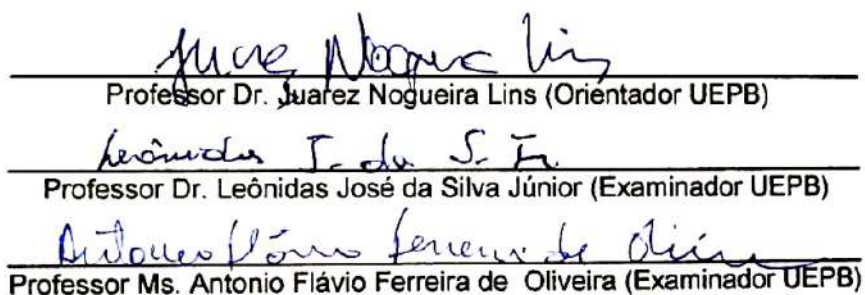 Juarez Nogueira Lins
Professor Dr. Juarez Nogueira Lins (Orientador UEPB)
Leônidas J. da S. Jr.
Professor Dr. Leônidas José da Silva Júnior (Examinador UEPB)
Antonio Flávio Ferreira de Oliveira
Professor Ms. Antonio Flávio Ferreira de Oliveira (Examinador UEPB)